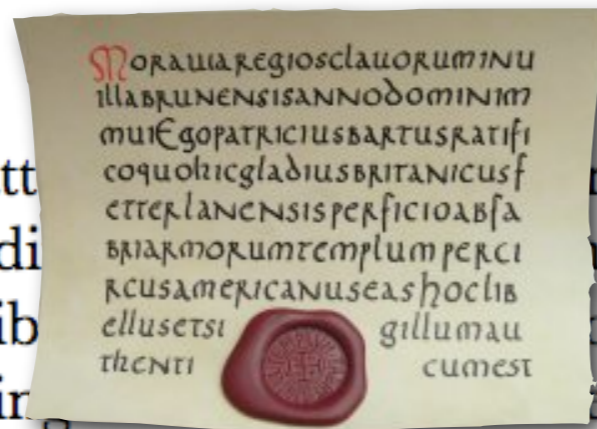 Morauiaregiosclauoruminu
illabrunensisannodominim
muiEgopatriciusbartusratifi
coquohicgladiusbritanicusf
etterlanensisperficioabfa
briarmorumtemplumperci
rcusamericanuseashoclib
ellusetsi gillumau
thenti cumest